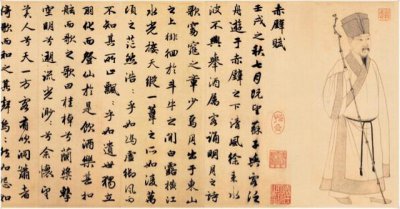 赤壁賦
壬戌之秋七月既望蘇子與客泛
舟遊于赤壁之下清風徐来水
波不興舉酒屬客誦明月之詩
歌窈窕之章少焉月出于東山
之上徘徊於斗牛之間白露橫江
水光接天縱一葦之所如凌萬
頃之茫然浩〻乎如馮虛御風而
不知其所止飄〻乎如遺世獨立
羽化而登仙於是飲酒樂甚扣
舷而歌之歌曰桂棹兮蘭槳擊
空明兮泝流光渺〻兮余懷望
美人兮天一方客有吹洞簫者
倚歌而和之其聲嗚〻然如怨如